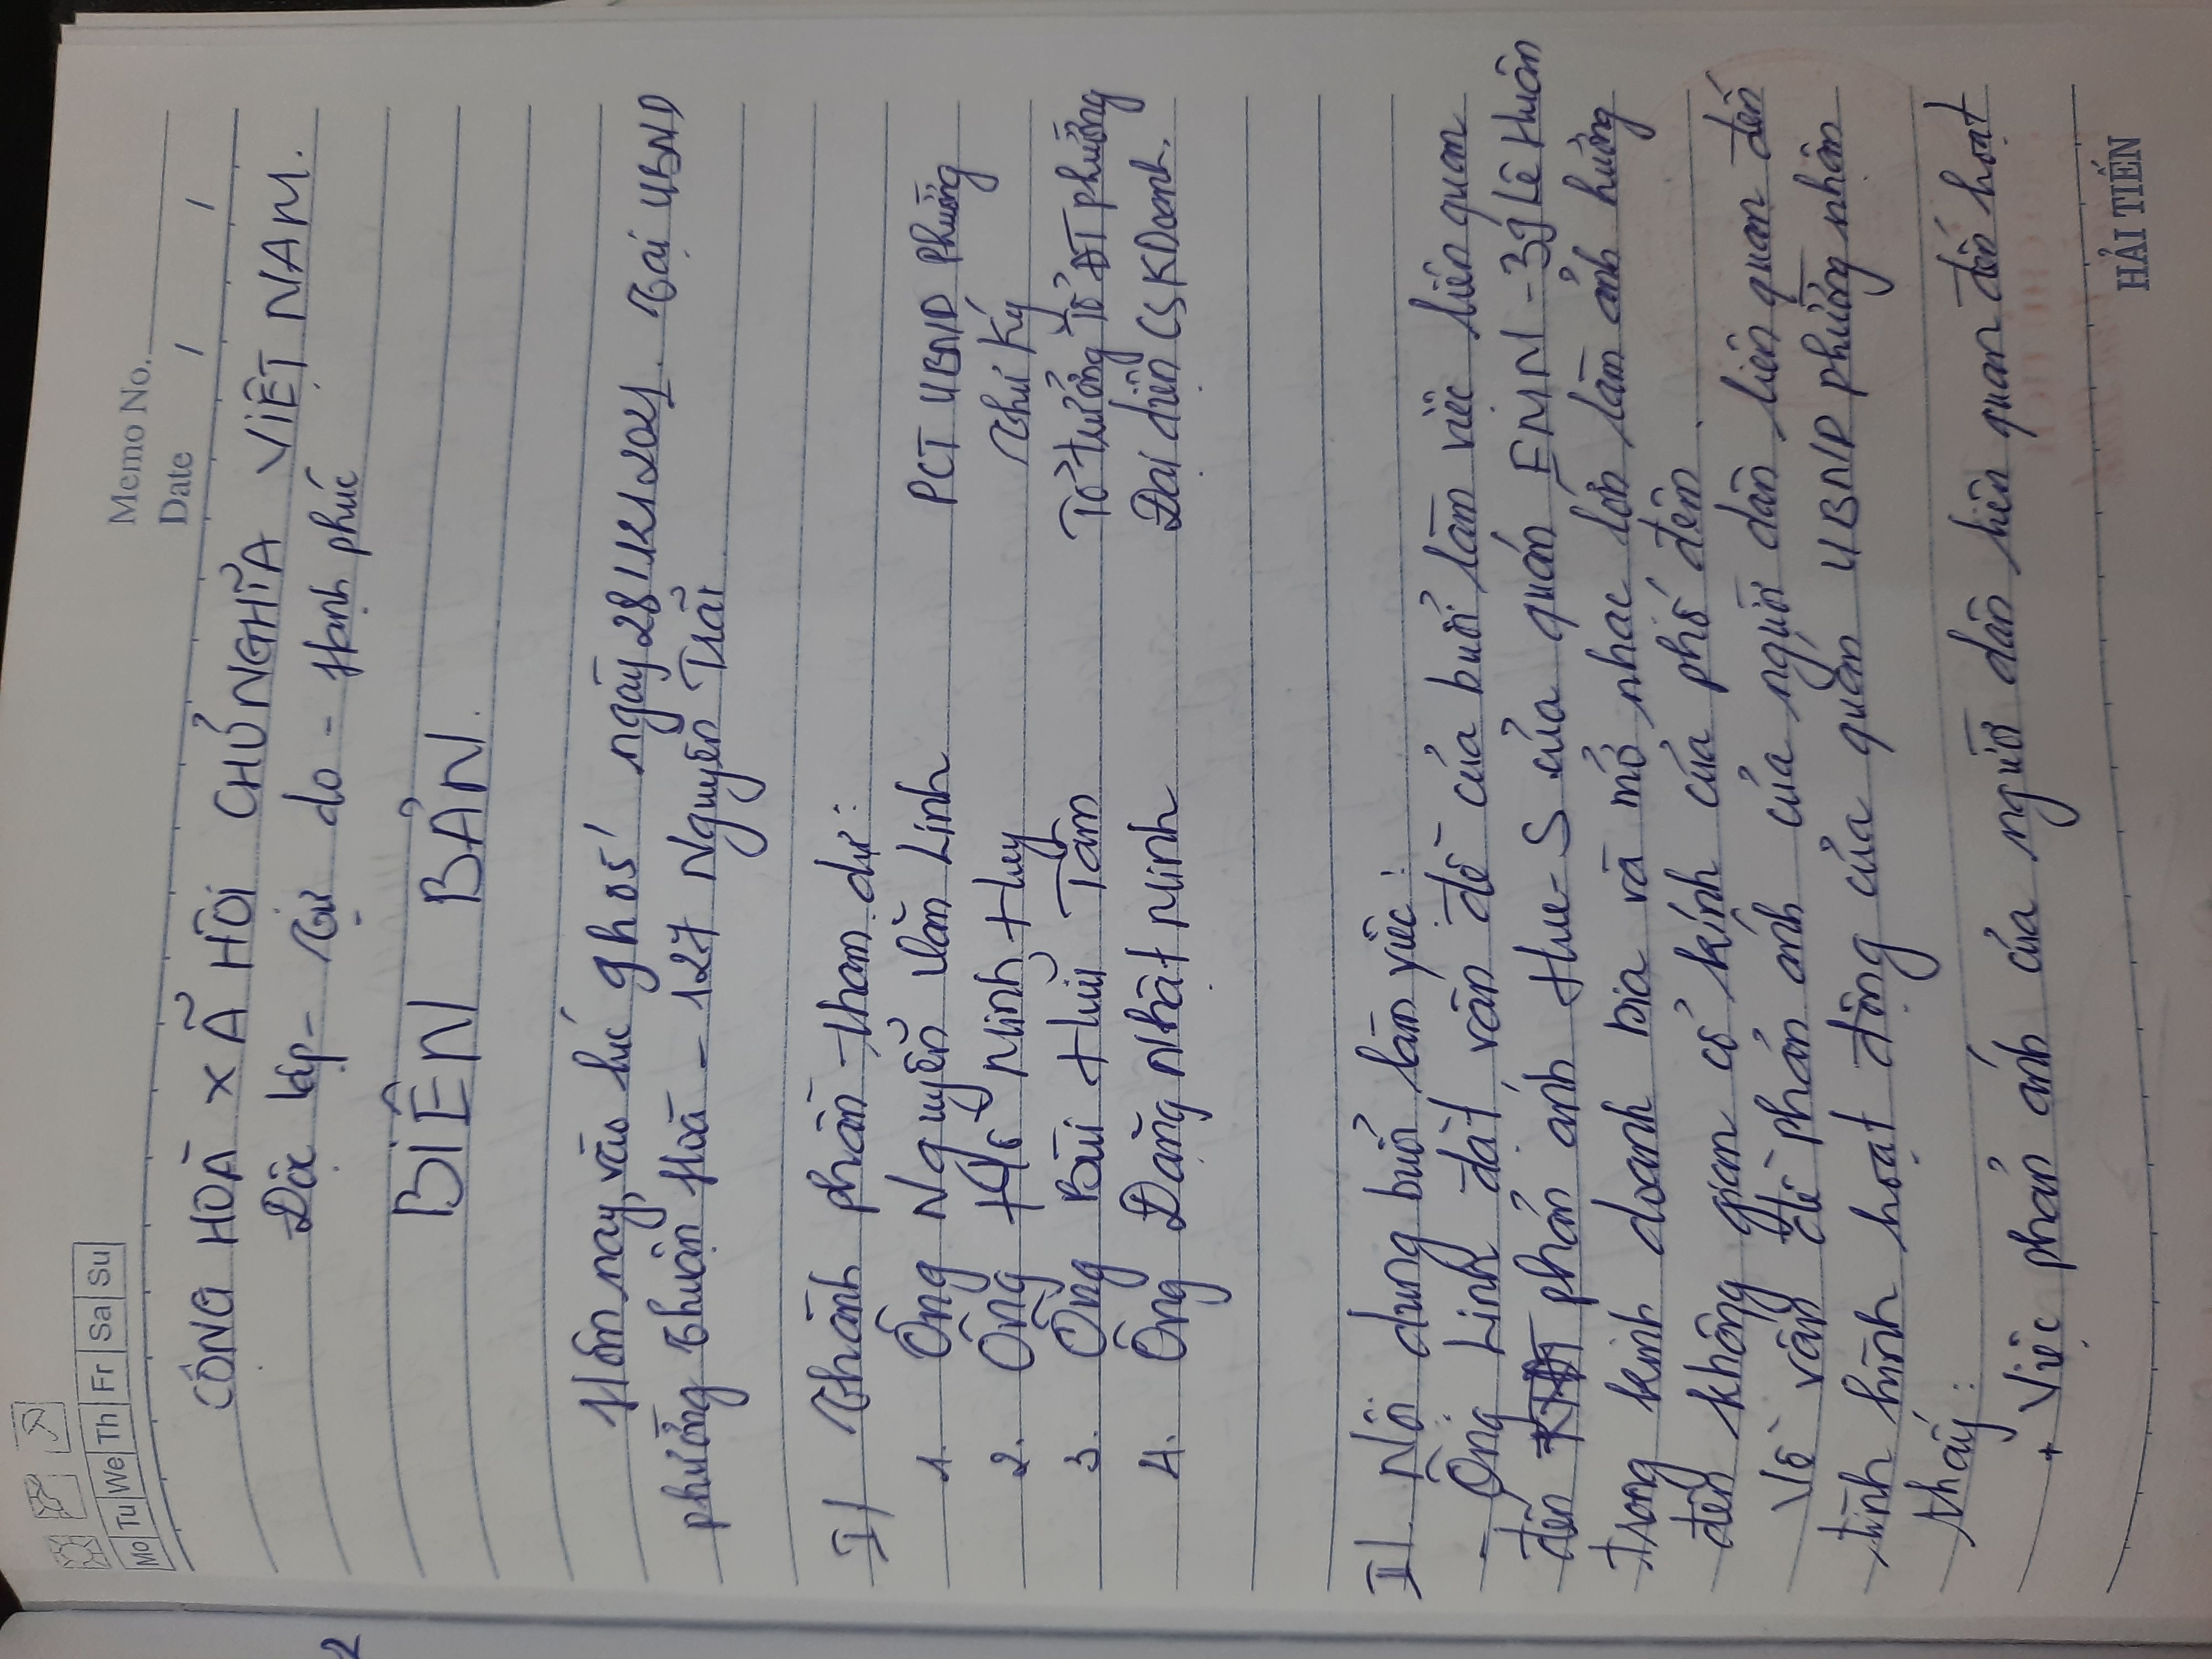 Memo No.
Date / /
Mo Tu We Th Fr Sa Su
CỘNG HOÀ XÃ HỘI CHỦ NGHĨA VIỆT NAM.
Độc lập - Tự do - Hạnh phúc
BIÊN BẢN.
Hôm nay, vào lúc 9h05' ngày 28/12/2021. Tại UBND
phường Thuận Hoà - 127 Nguyễn Trãi
I/ Thành phần tham dự:
1. Ông Nguyễn Văn Linh PCT UBND Phường
2. Ông Minh Huy Thư Ký
3. Ông Bùi Hữu Tâm Tổ trưởng Tổ ĐT phường
4. Ông Đặng Nhật Minh Đại diện CSKDoanh.
II/ Nội dung buổi làm việc:
- Ông Linh đặt vấn đề của buổi làm việc liên quan
đến phản ánh Hue-S của quán EMM - 39 Lê Huân
trong kinh doanh bia và mở nhạc lớn làm ảnh hưởng
đến không gian cổ kính của phố đêm.
Về vấn đề phản ánh của người dân liên quan đến
tình hình hoạt động của quán UBND phường nhận
thấy:
+ Việc phản ánh của người dân liên quan đến hoạt
HẢI TIẾN
2